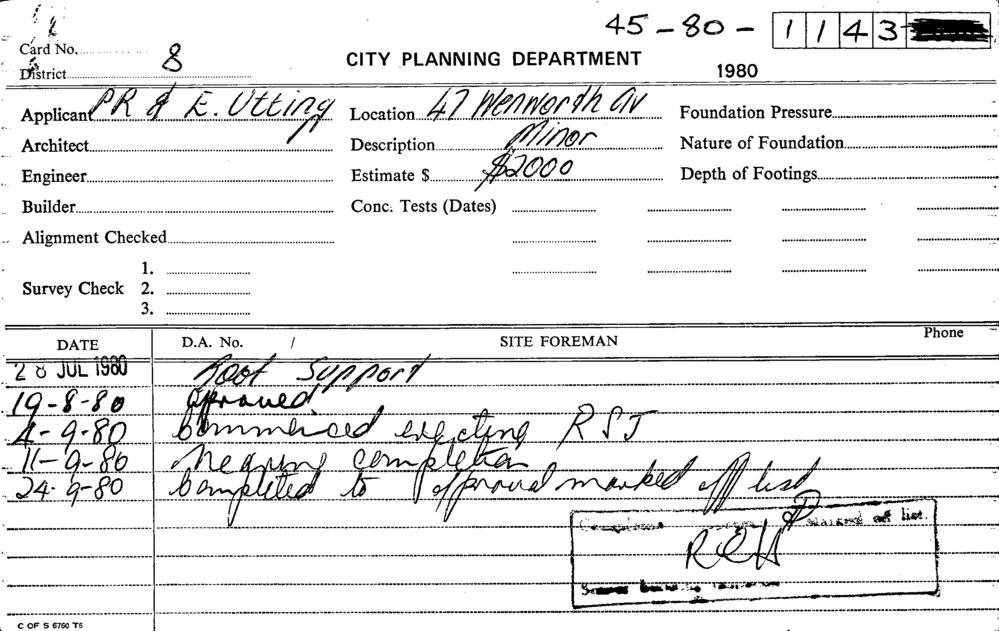 45-80-1143
Card No.
District 8
CITY PLANNING DEPARTMENT
1980
Applicant PR & E. Utting Location 47 Wenworth Av Foundation Pressure
Architect Description Minor Nature of Foundation
Engineer Estimate $ $2000 Depth of Footings
Builder Conc. Tests (Dates)
Alignment Checked
1.
Survey Check 2.
3.
DATE D.A. No. / SITE FOREMAN Phone
28 JUL 1980 Roof Support
19-8-80 Aproved.
4-9-80 Commenced erecting RSJ
11-9-80 Nearing completion
24-9-80 Completed to approval marked off list
marked off list.
C OF S 6760 T6